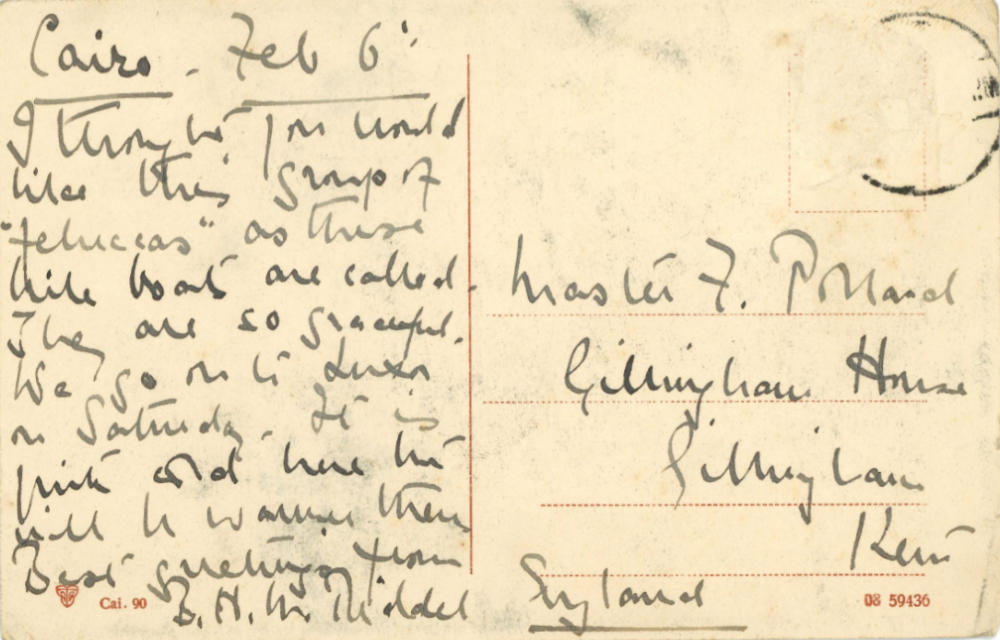 Cairo - Feb 6"
I thought you would
like this group of
"feluccas" as these
Nile boats are called.
They are so graceful.
We go on to Luxor
on Saturday. It is
quite cold here but
will be warmer there
Best greetings from
B. H. W. Riddel
Master F. Pollard
Gillingham House
Gillingham
Kent
England
Cai. 90
08 59436